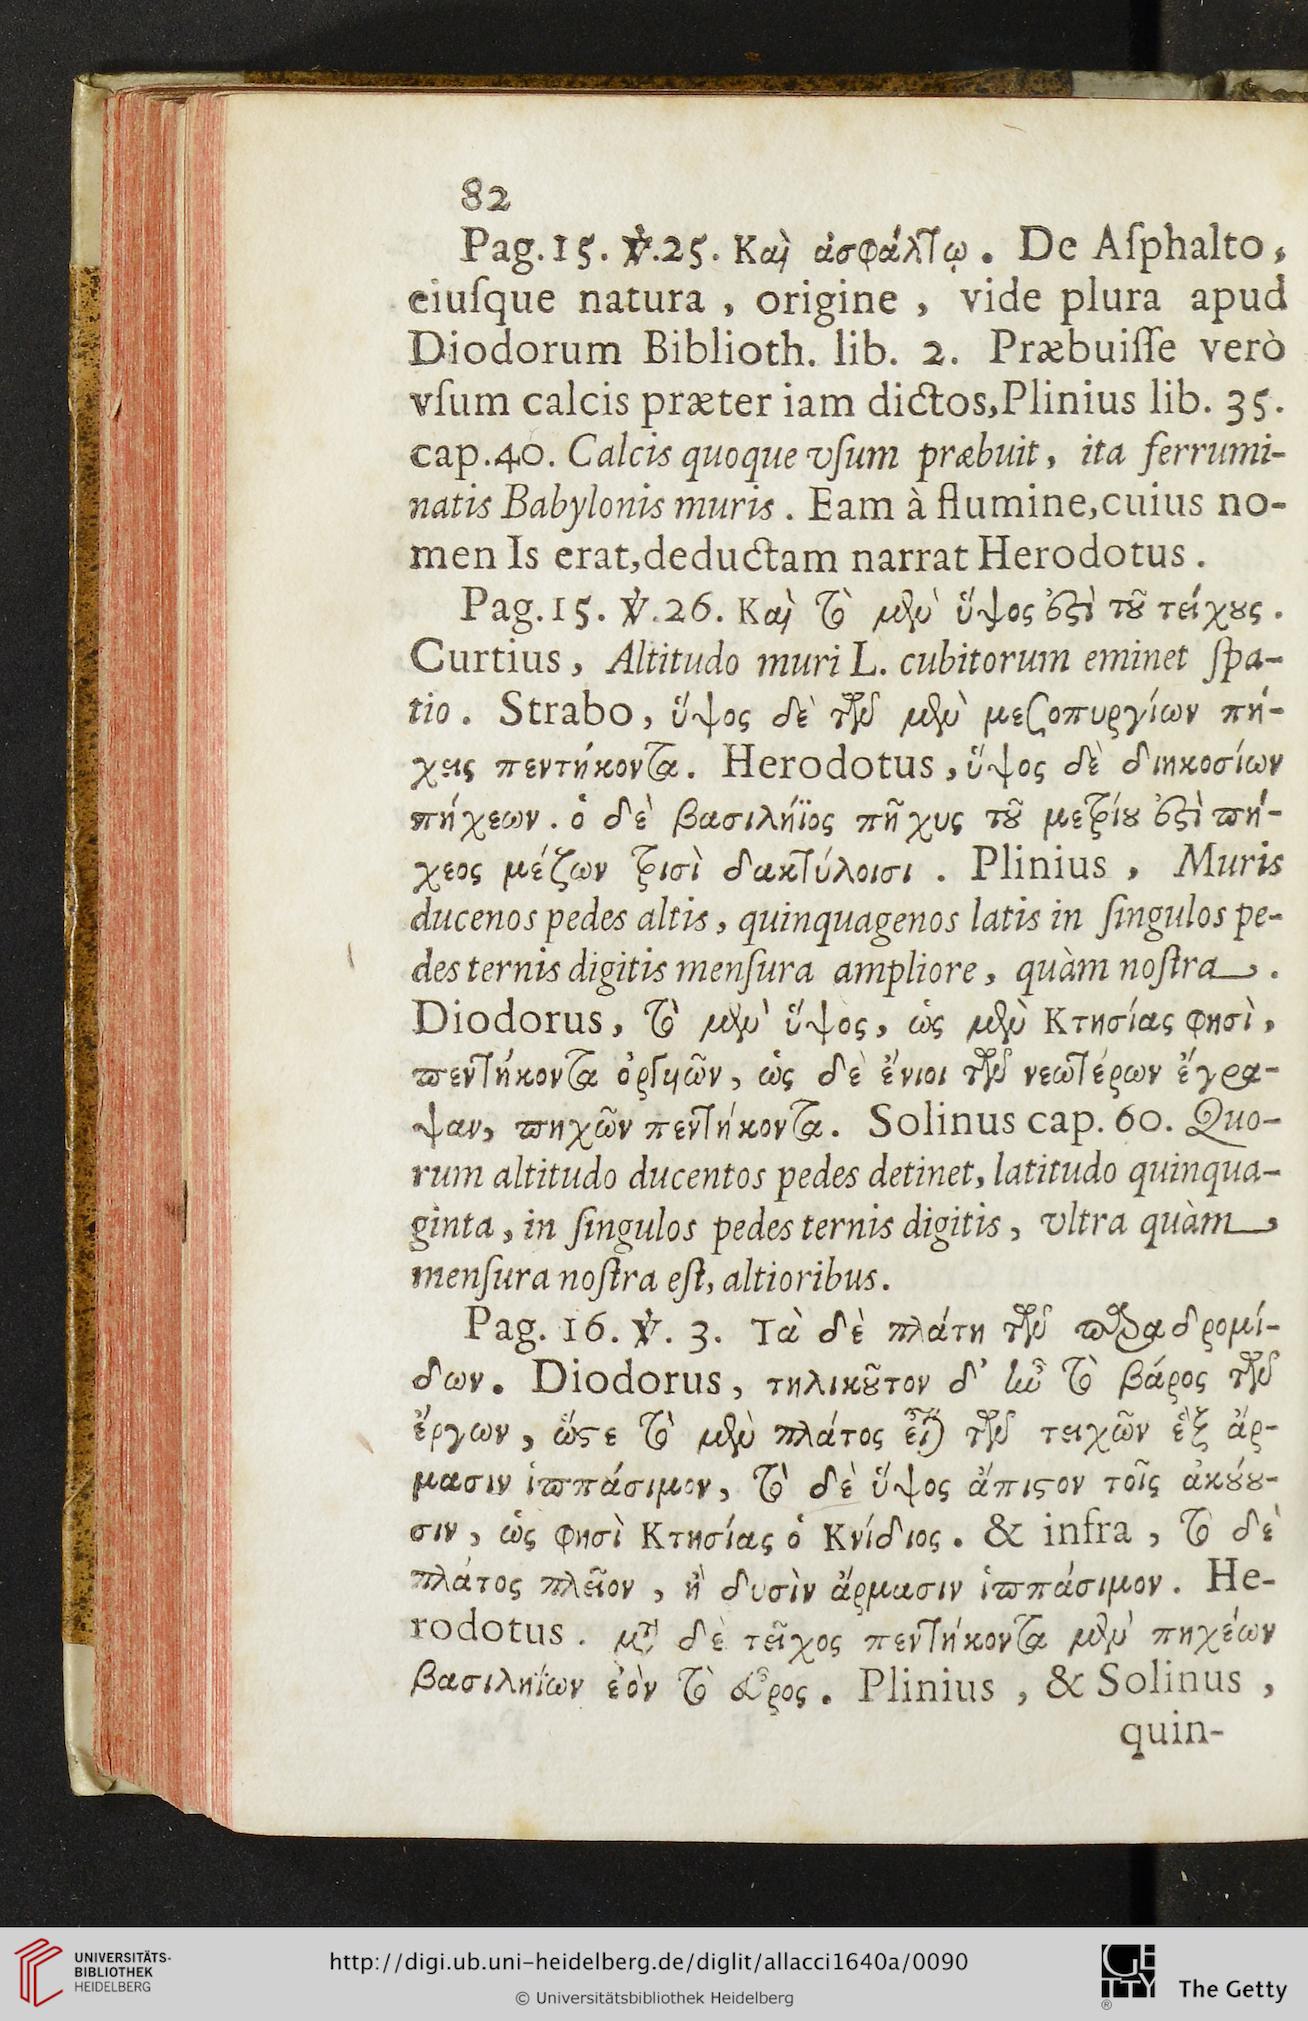 82
Pag. 15. ℣. 25. Καὶ ἀσφάλτῳ. De Aſphalto,
eiuſque natura, origine, vide plura apud
Diodorum Biblioth. lib. 2. Præbuiſſe verò
vſum calcis præter iam dictos, Plinius lib. 35.
cap. 40. Calcis quoque vſum præbuit, ita ferrumi-
natis Babylonis muris. Eam à flumine, cuius no-
men Is erat, deductam narrat Herodotus.
Pag. 15. ℣. 26. Καὶ τὸ μὲν ὕψος ἐστὶ τοῦ τείχους.
Curtius, Altitudo muri L. cubitorum eminet ſpa-
tio. Strabo, ὕψος δὲ τῶν μὲν μεζοπυργίων πή-
χεις πεντήκοντα. Herodotus, ὕψος δὲ διηκοσίων
πήχεων. ὁ δὲ βασιλήϊος πῆχυς τοῦ μετρίου ἐστὶ πή-
χεος μέζων τρισὶ δακτύλοισι. Plinius, Muris
ducenos pedes altis, quinquagenos latis in ſingulos pe-
des ternis digitis menſura ampliore, quàm noſtra.
Diodorus, τὸ μὲν ὕψος, ὡς μὲν Κτησίας φησὶ,
πεντήκοντα ὀργυιῶν, ὡς δὲ ἔνιοι τῶν νεωτέρων ἔγρα-
ψαν, πηχῶν πεντήκοντα. Solinus cap. 60. Quo-
rum altitudo ducentos pedes detinet, latitudo quinqua-
ginta, in ſingulos pedes ternis digitis, vltra quàm
menſura noſtra eſt, altioribus.
Pag. 16. ℣. 3. Τὰ δὲ πλάτη τῶν παραδρομί-
δων. Diodorus, τηλικοῦτον δ' ἦν τὸ βάρος τῶν
ἔργων, ὥστε τὸ μὲν πλάτος εἶναι τῶν τειχῶν ἓξ ἅρ-
μασιν ἱππάσιμον, τὸ δὲ ὕψος ἄπιστον τοῖς ἀκούου-
σιν, ὡς φησὶ Κτησίας ὁ Κνίδιος. & infra, τὸ δὲ
πλάτος πλεῖον, ἢ δυσὶν ἅρμασιν ἱππάσιμον. He-
rodotus. μετὰ δὲ τεῖχος πεντήκοντα μὲν πηχέων
βασιληΐων ἐὸν τὸ εὖρος. Plinius, & Solinus,
quin-
UNIVERSITÄTS-
BIBLIOTHEK
HEIDELBERG
http://digi.ub.uni-heidelberg.de/diglit/allacci1640a/0090
© Universitätsbibliothek Heidelberg
GETTY
The Getty